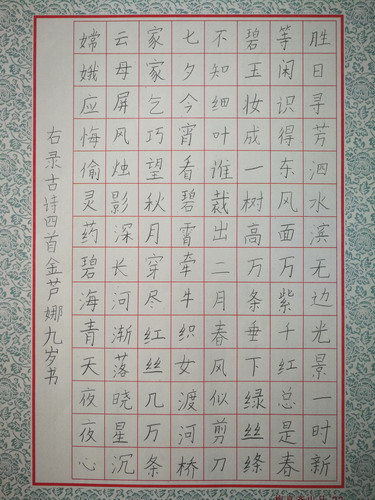 胜日寻芳泗水滨无边光景一时新
等闲识得东风面万紫千红总是春
碧玉妆成一树高万条垂下绿丝绦
不知细叶谁裁出二月春风似剪刀
七夕今宵看碧霄牵牛织女渡河桥
家家乞巧望秋月穿尽红丝几万条
云母屏风烛影深长河渐落晓星沉
嫦娥应悔偷灵药碧海青天夜夜心
右录古诗四首金芦娜九岁书